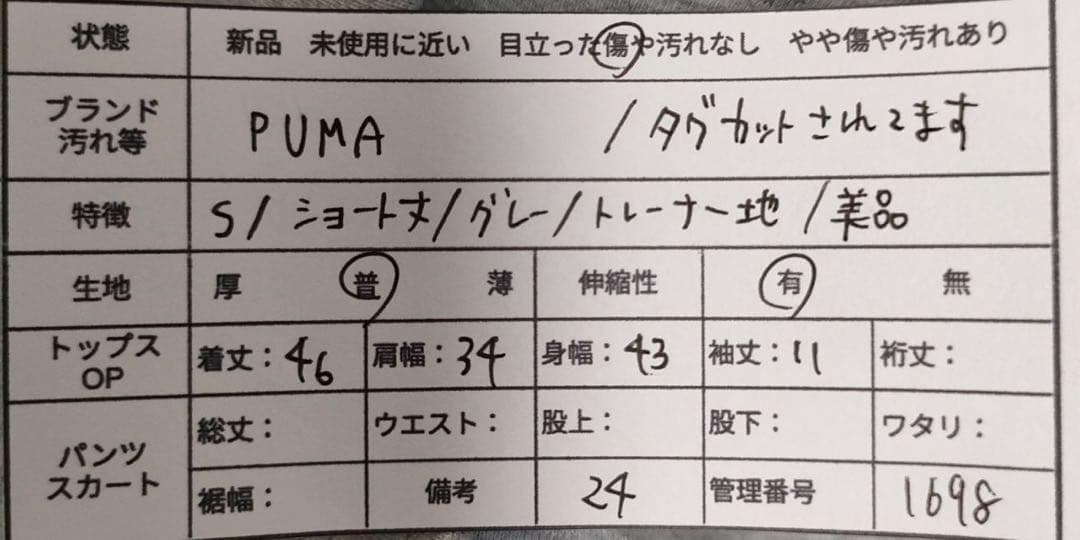 状態 新品 未使用に近い 目立った傷や汚れなし やや傷や汚れあり
ブランド
汚れ等 PUMA /タグカットされてます
特徴 S/ショート丈/グレー/トレーナー地/美品
生地 厚 普 薄 伸縮性 有 無
トップス
OP 着丈：46 肩幅：34 身幅：43 袖丈：11 裄丈：
パンツ
スカート 総丈： ウエスト： 股上： 股下： ワタリ：
裾幅： 備考 24 管理番号 1698